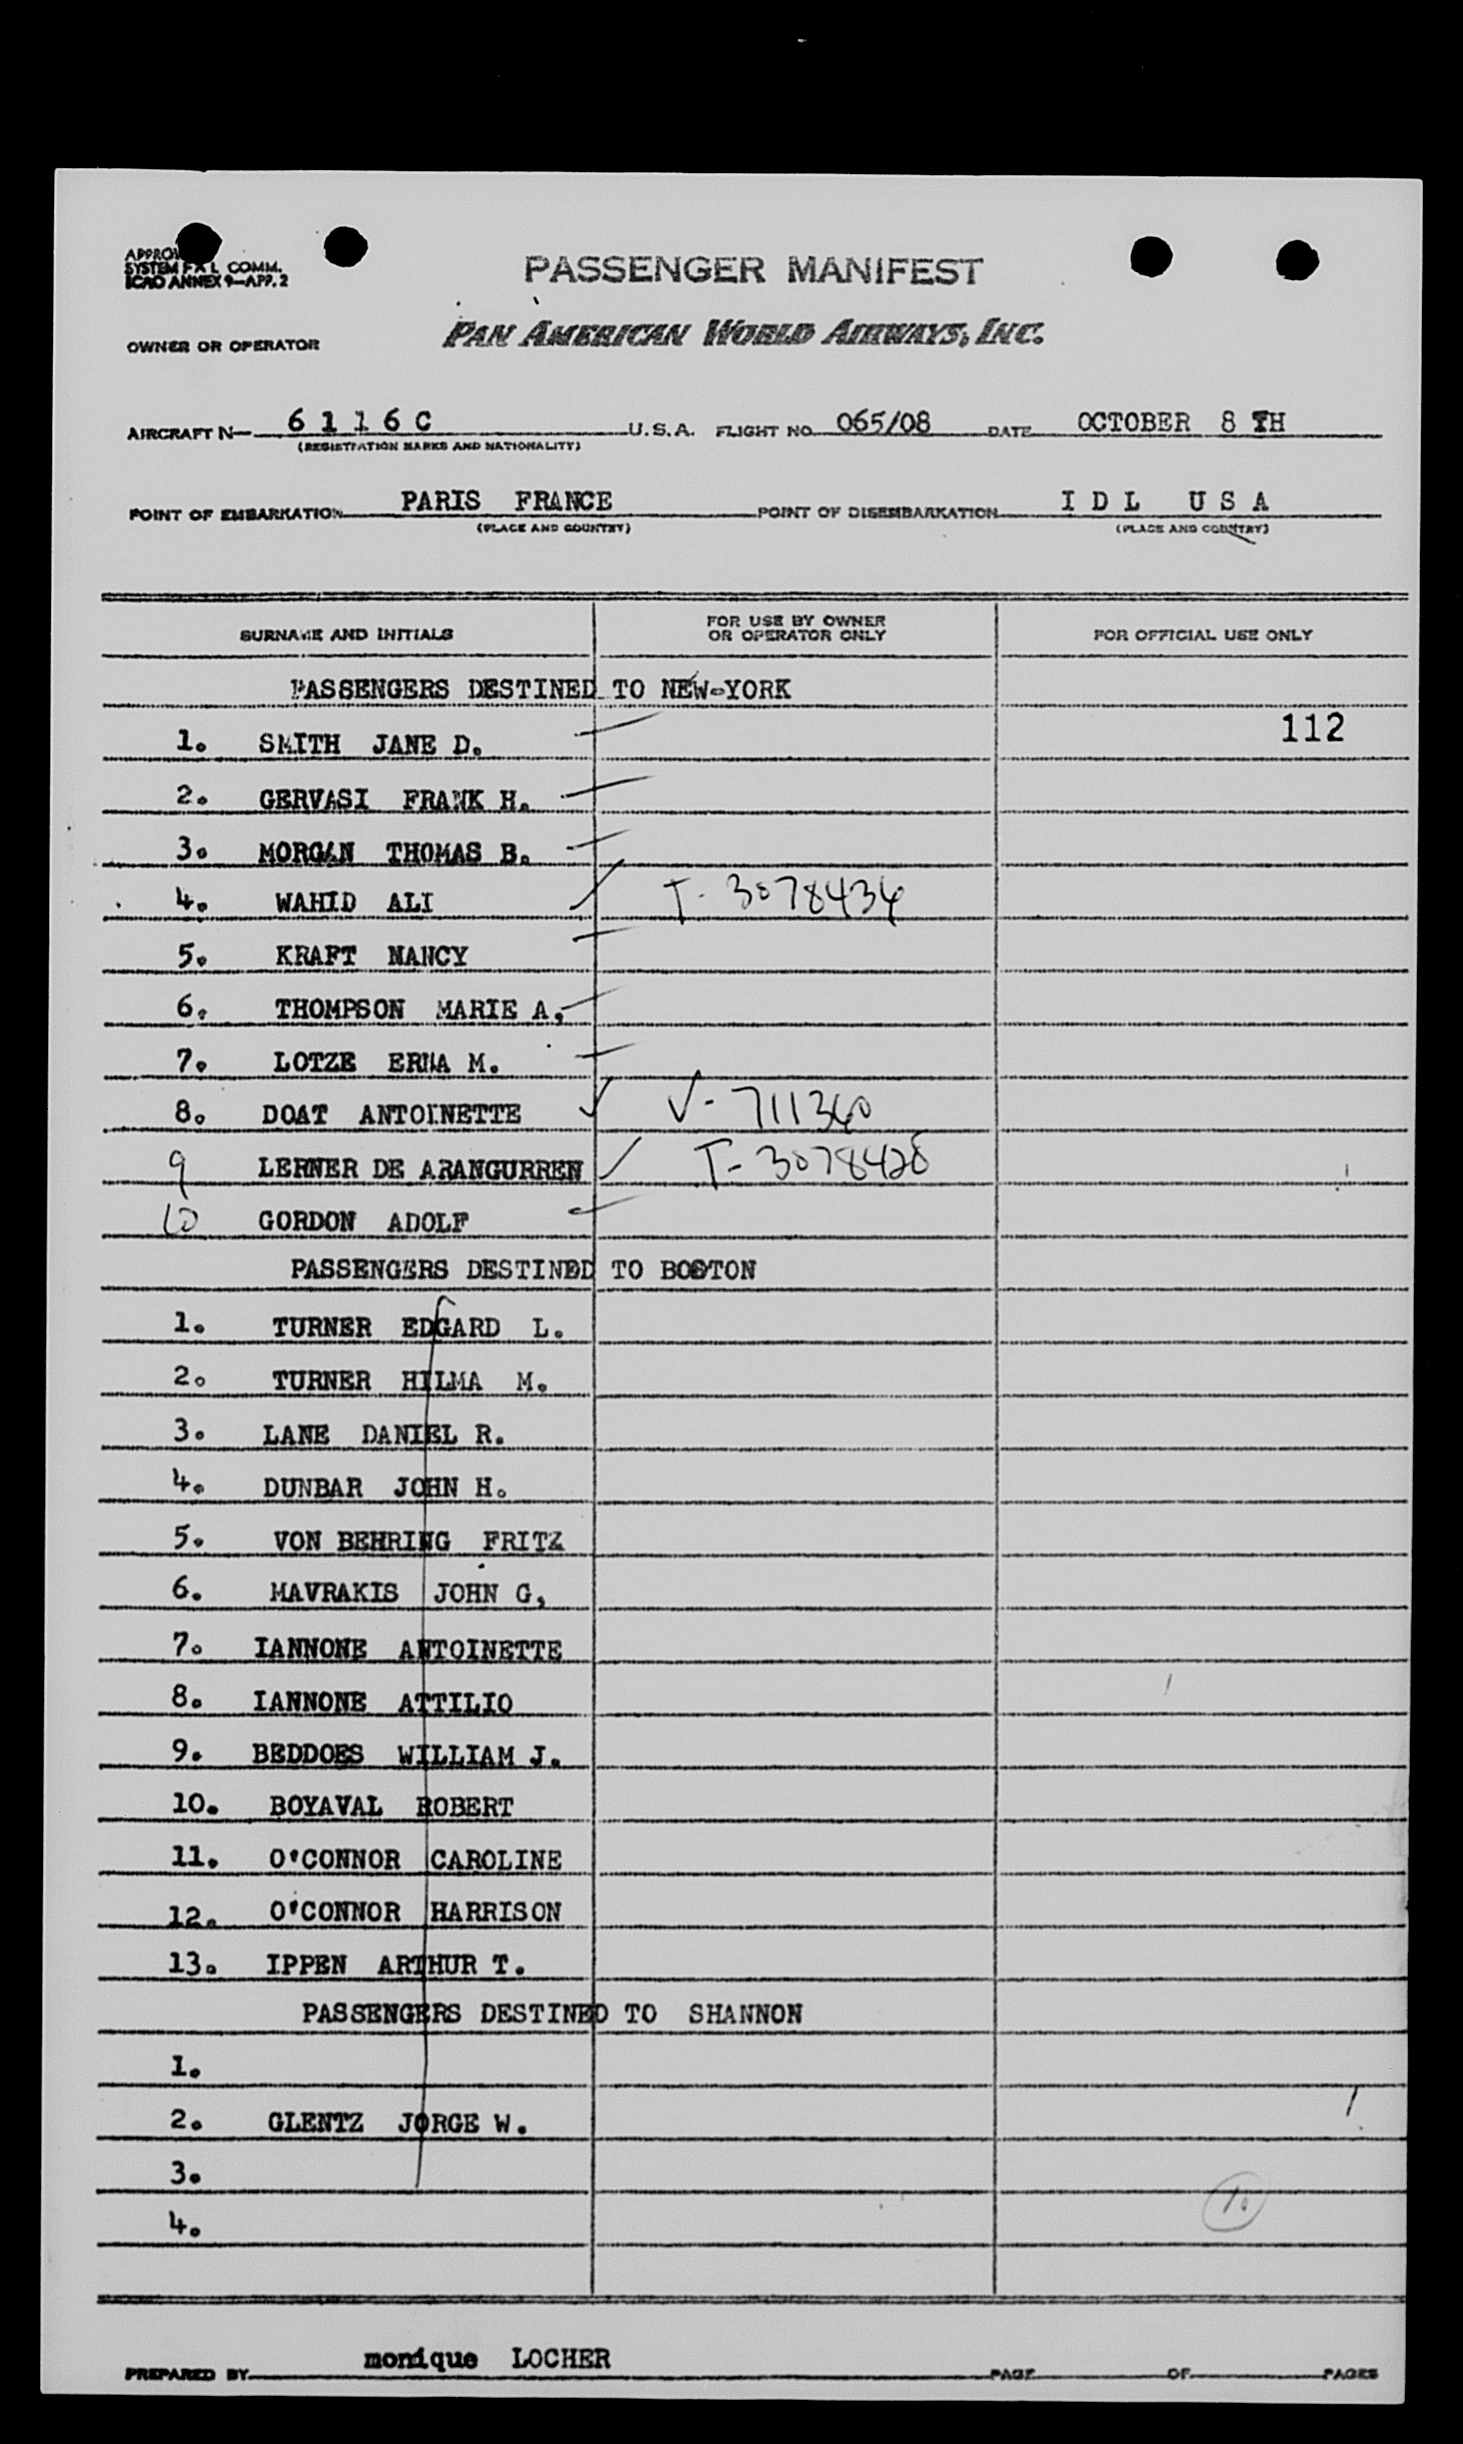 SYSTEM F A L COMM.
ICAO ANNEX 9—APP. 2
PASSENGER MANIFEST
OWNER OR OPERATOR PAN AMERICAN WORLD AIRWAYS, INC.
AIRCRAFT N— 6 1 1 6 C U.S.A. FLIGHT NO. 065/08 DATE OCTOBER 8 TH
(REGISTRATION MARKS AND NATIONALITY)
POINT OF EMBARKATION PARIS FRANCE POINT OF DISEMBARKATION I D L U S A
(PLACE AND COUNTRY) (PLACE AND COUNTRY)
SURNAME AND INITIALS FOR USE BY OWNER OR OPERATOR ONLY FOR OFFICIAL USE ONLY
PASSENGERS DESTINED TO NEW-YORK
1. SMITH JANE D. 112
2. GERVASI FRANK H.
3. MORGAN THOMAS B.
4. WAHID ALI T- 3078434
5. KRAFT NANCY
6. THOMPSON MARIE A.
7. LOTZE ERNA M.
8. DOAT ANTOINETTE V- 711360
9 LERNER DE ARANGURREN T- 3078428
10 GORDON ADOLF
PASSENGERS DESTINED TO BOSTON
1. TURNER EDGARD L.
2. TURNER HILMA M.
3. LANE DANIEL R.
4. DUNBAR JOHN H.
5. VON BEHRING FRITZ
6. MAVRAKIS JOHN G,
7. IANNONE ANTOINETTE
8. IANNONE ATTILIO
9. BEDDOES WILLIAM J.
10. BOYAVAL ROBERT
11. O'CONNOR CAROLINE
12. O'CONNOR HARRISON
13. IPPEN ARTHUR T.
PASSENGERS DESTINED TO SHANNON
1.
2. GLENTZ JORGE W.
3.
10
4.
PREPARED BY monique LOCHER PAGE OF PAGES